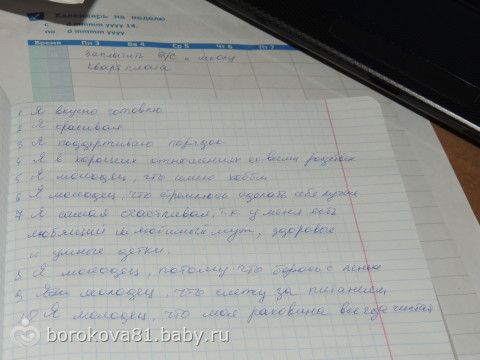 Календарь на неделю
с d mmmm yyyy 14.
по d mmmm yyyy
Время Пн 3 Вт 4 Ср 5 Чт 6 Пт 7
Заплатить д/с и школу
Квартплата
1 Я вкусно готовлю
2 Я красивая
3 Я поддерживаю порядок
4 Я в хороших отношениях со всеми родствен
5 Я молодец, что имею хобби
6 Я молодец, что стремлюсь сделать себе лучше
7 Я самая счастливая, т.к у меня есть
любящий и любимый муж, здоровые
и умные детки.
8 Я молодец, потому что борюсь с ленью
9 Я молодец, что слежу за питанием
10 Я молодец, что моя раковина всегда чистая
borokova81.baby.ru